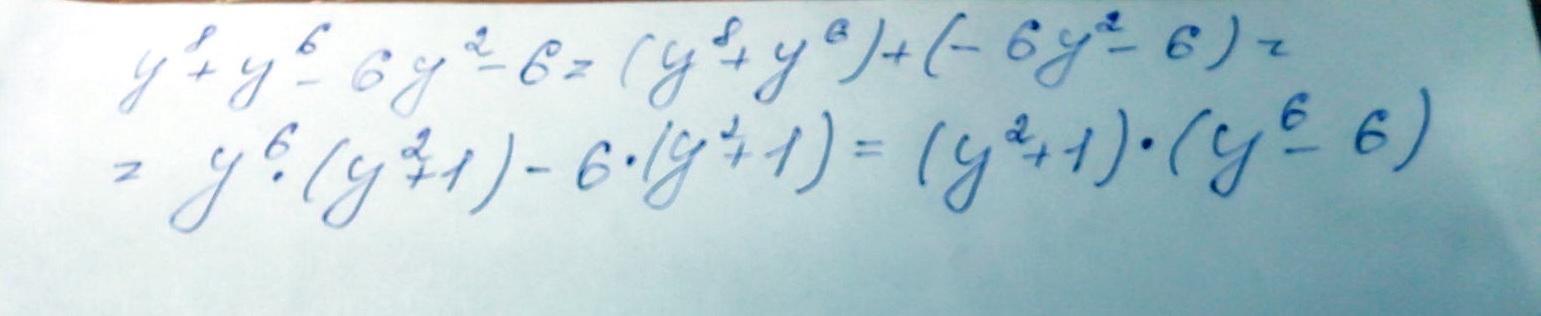 y⁸+y⁶-6y²-6=(y⁸+y⁶)+(-6y²-6)=
=y⁶·(y²+1)-6·(y²+1)=(y²+1)·(y⁶-6)